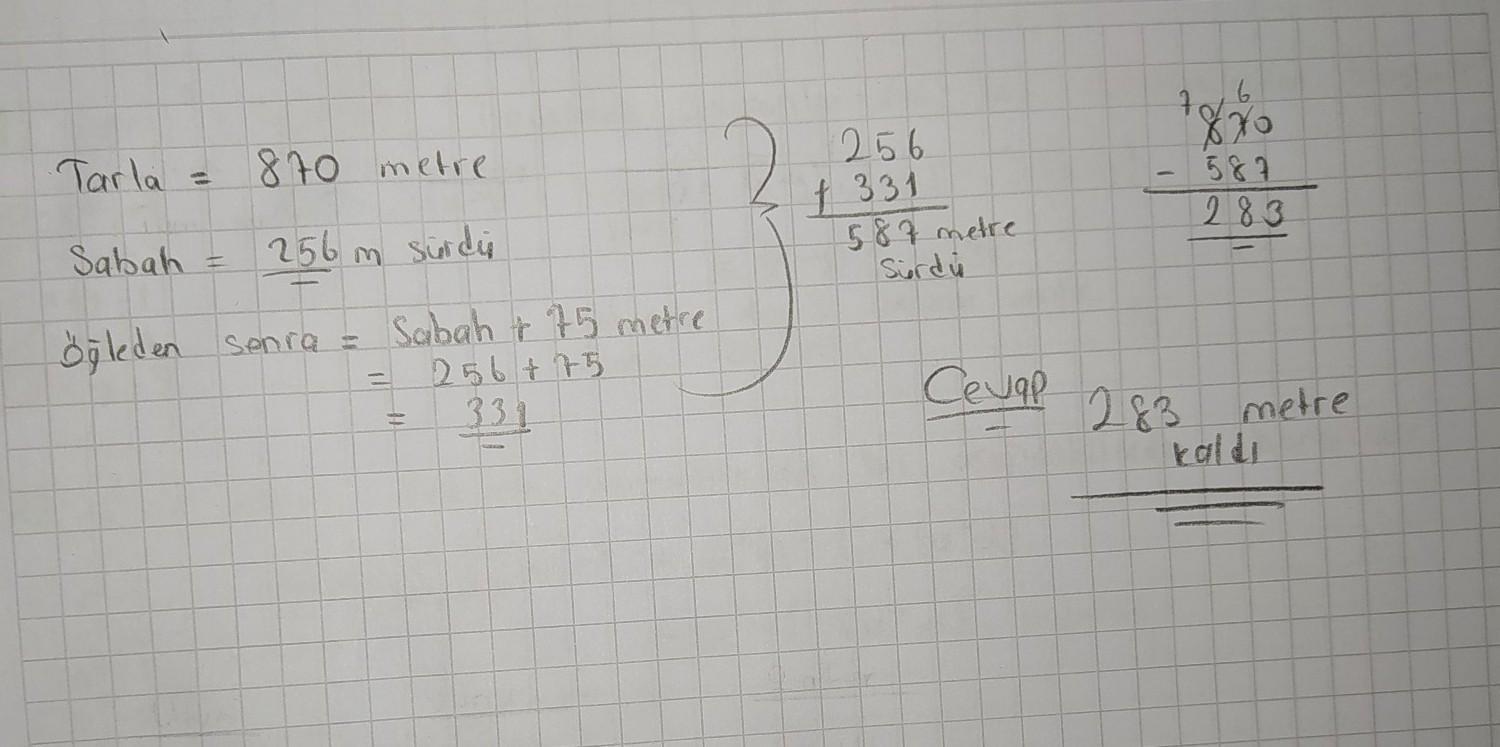 Tarla = 870 metre
Sabah = 256 m sürdü
Öğleden sonra = Sabah + 75 metre
= 256 + 75
= 331
256
+ 331
587 metre
sürdü
7 6
870
- 587
283
Cevap 283 metre
kaldı